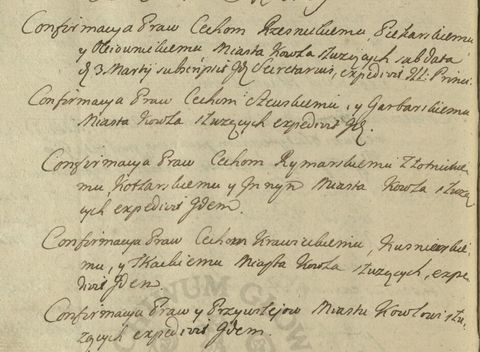 Confirmacya Praw Cechom Rzeznickiemu, Piekarskiemu
y Oleiownickiemu Miasta Kowla służących sub data
3 Martij subscripsit Secretarius, expedivit Ill: Princi.
Confirmacya Praw Cechom Szewskiemu, y Garbarskiemu
Miasta Kowla służących expedivit
Confirmacya Praw Cechom Rymarskiemu Złotnickie
mu, Kotlarskiemu y Innym Miasta Kowla służą
cych expedivit Idem.
Confirmacya Praw Cechom Krawieckiemu, Kusnierskie
mu, y Tkackiemu Miasta Kowla służących, expe
divit Idem.
Confirmacya Praw y Przywilejow Miastu Kowlowi słu
żących expedivit Idem.
WUM GŁÓW